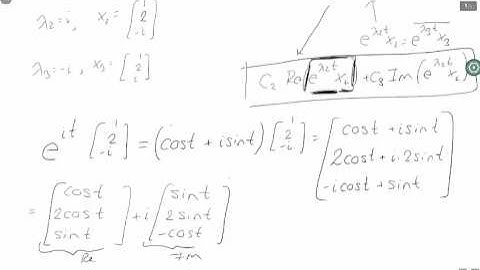 λ₂ = i, x₂ = [1 2 -i]
λ₃ = -i, x₃ = [1 2 i]
e^{λ₂t} x₂ = \overline{e^{λ₃t} x₃}
+ C₂ Re(e^{λ₂t} x₂) + C₃ Im(e^{λ₂t} x₂)
e^{it} [1 2 -i] = (cost + i sint) [1 2 -i] = [cost + isint 2cost + i·2sint -icost + sint]
= [cost 2cost sint] + i [sint 2sint -cost]
Re Im